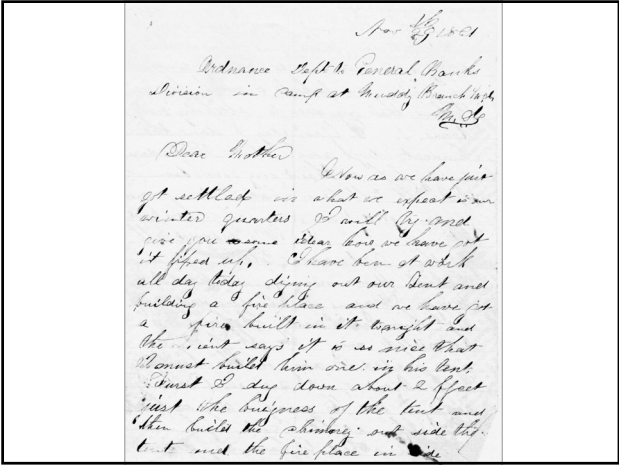 Nov 29th 1861
Ordnance Dept Genral Banks
Division in camp at Muddy Branch
Md
Dear Mother
Now as we have just
got settled in what we expect is our
winter quarters I will try and
give you some idear how we have got
it fixed up. I have ben at work
all day today diging out our tent and
building a fire place and we have got
a fire built in it tonight and
the says it is so nice that
I must build him one in his tent.
Furst I dug down about 2 ffeet
just the bigness of the tent and
then build the chimney out side the
tent and the fire place in side